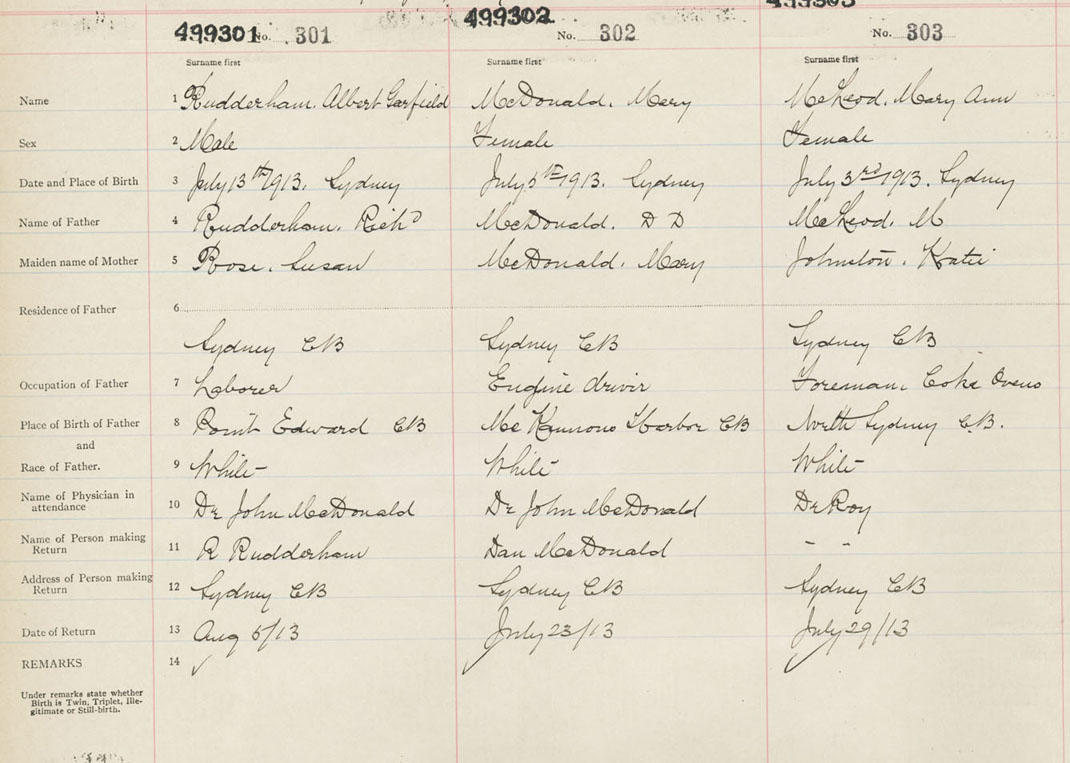 499301 No. 301 499302 No. 302 499303 No. 303
Surname first Surname first Surname first
Name 1 Rudderham. Albert Garfield McDonald. Mary McLeod. Mary Ann
Sex 2 Male Female Female
Date and Place of Birth 3 July 13th 1913. Sydney July 5th 1913. Sydney July 3rd 1913. Sydney
Name of Father 4 Rudderham. Richd McDonald. D D McLeod. M
Maiden name of Mother 5 Rose. Susan McDonald. Mary Johnston. Katie
Residence of Father 6
Sydney CB Sydney CB Sydney CB
Occupation of Father 7 Laborer Engine driver Foreman. Coke Ovens
Place of Birth of Father 8 Point Edward CB Mc Kinnons Harbor CB North Sydney C.B.
and
Race of Father. 9 White White White
Name of Physician in
attendance 10 Dr John McDonald Dr John McDonald Dr Roy
Name of Person making
Return 11 R Rudderham Dan McDonald - -
Address of Person making
Return 12 Sydney CB Sydney CB Sydney CB
Date of Return 13 Aug 5/13 July 23/13 July 29/13
REMARKS 14
Under remarks state whether
Birth is Twin, Triplet, Ille-
gitimate or Still-birth.